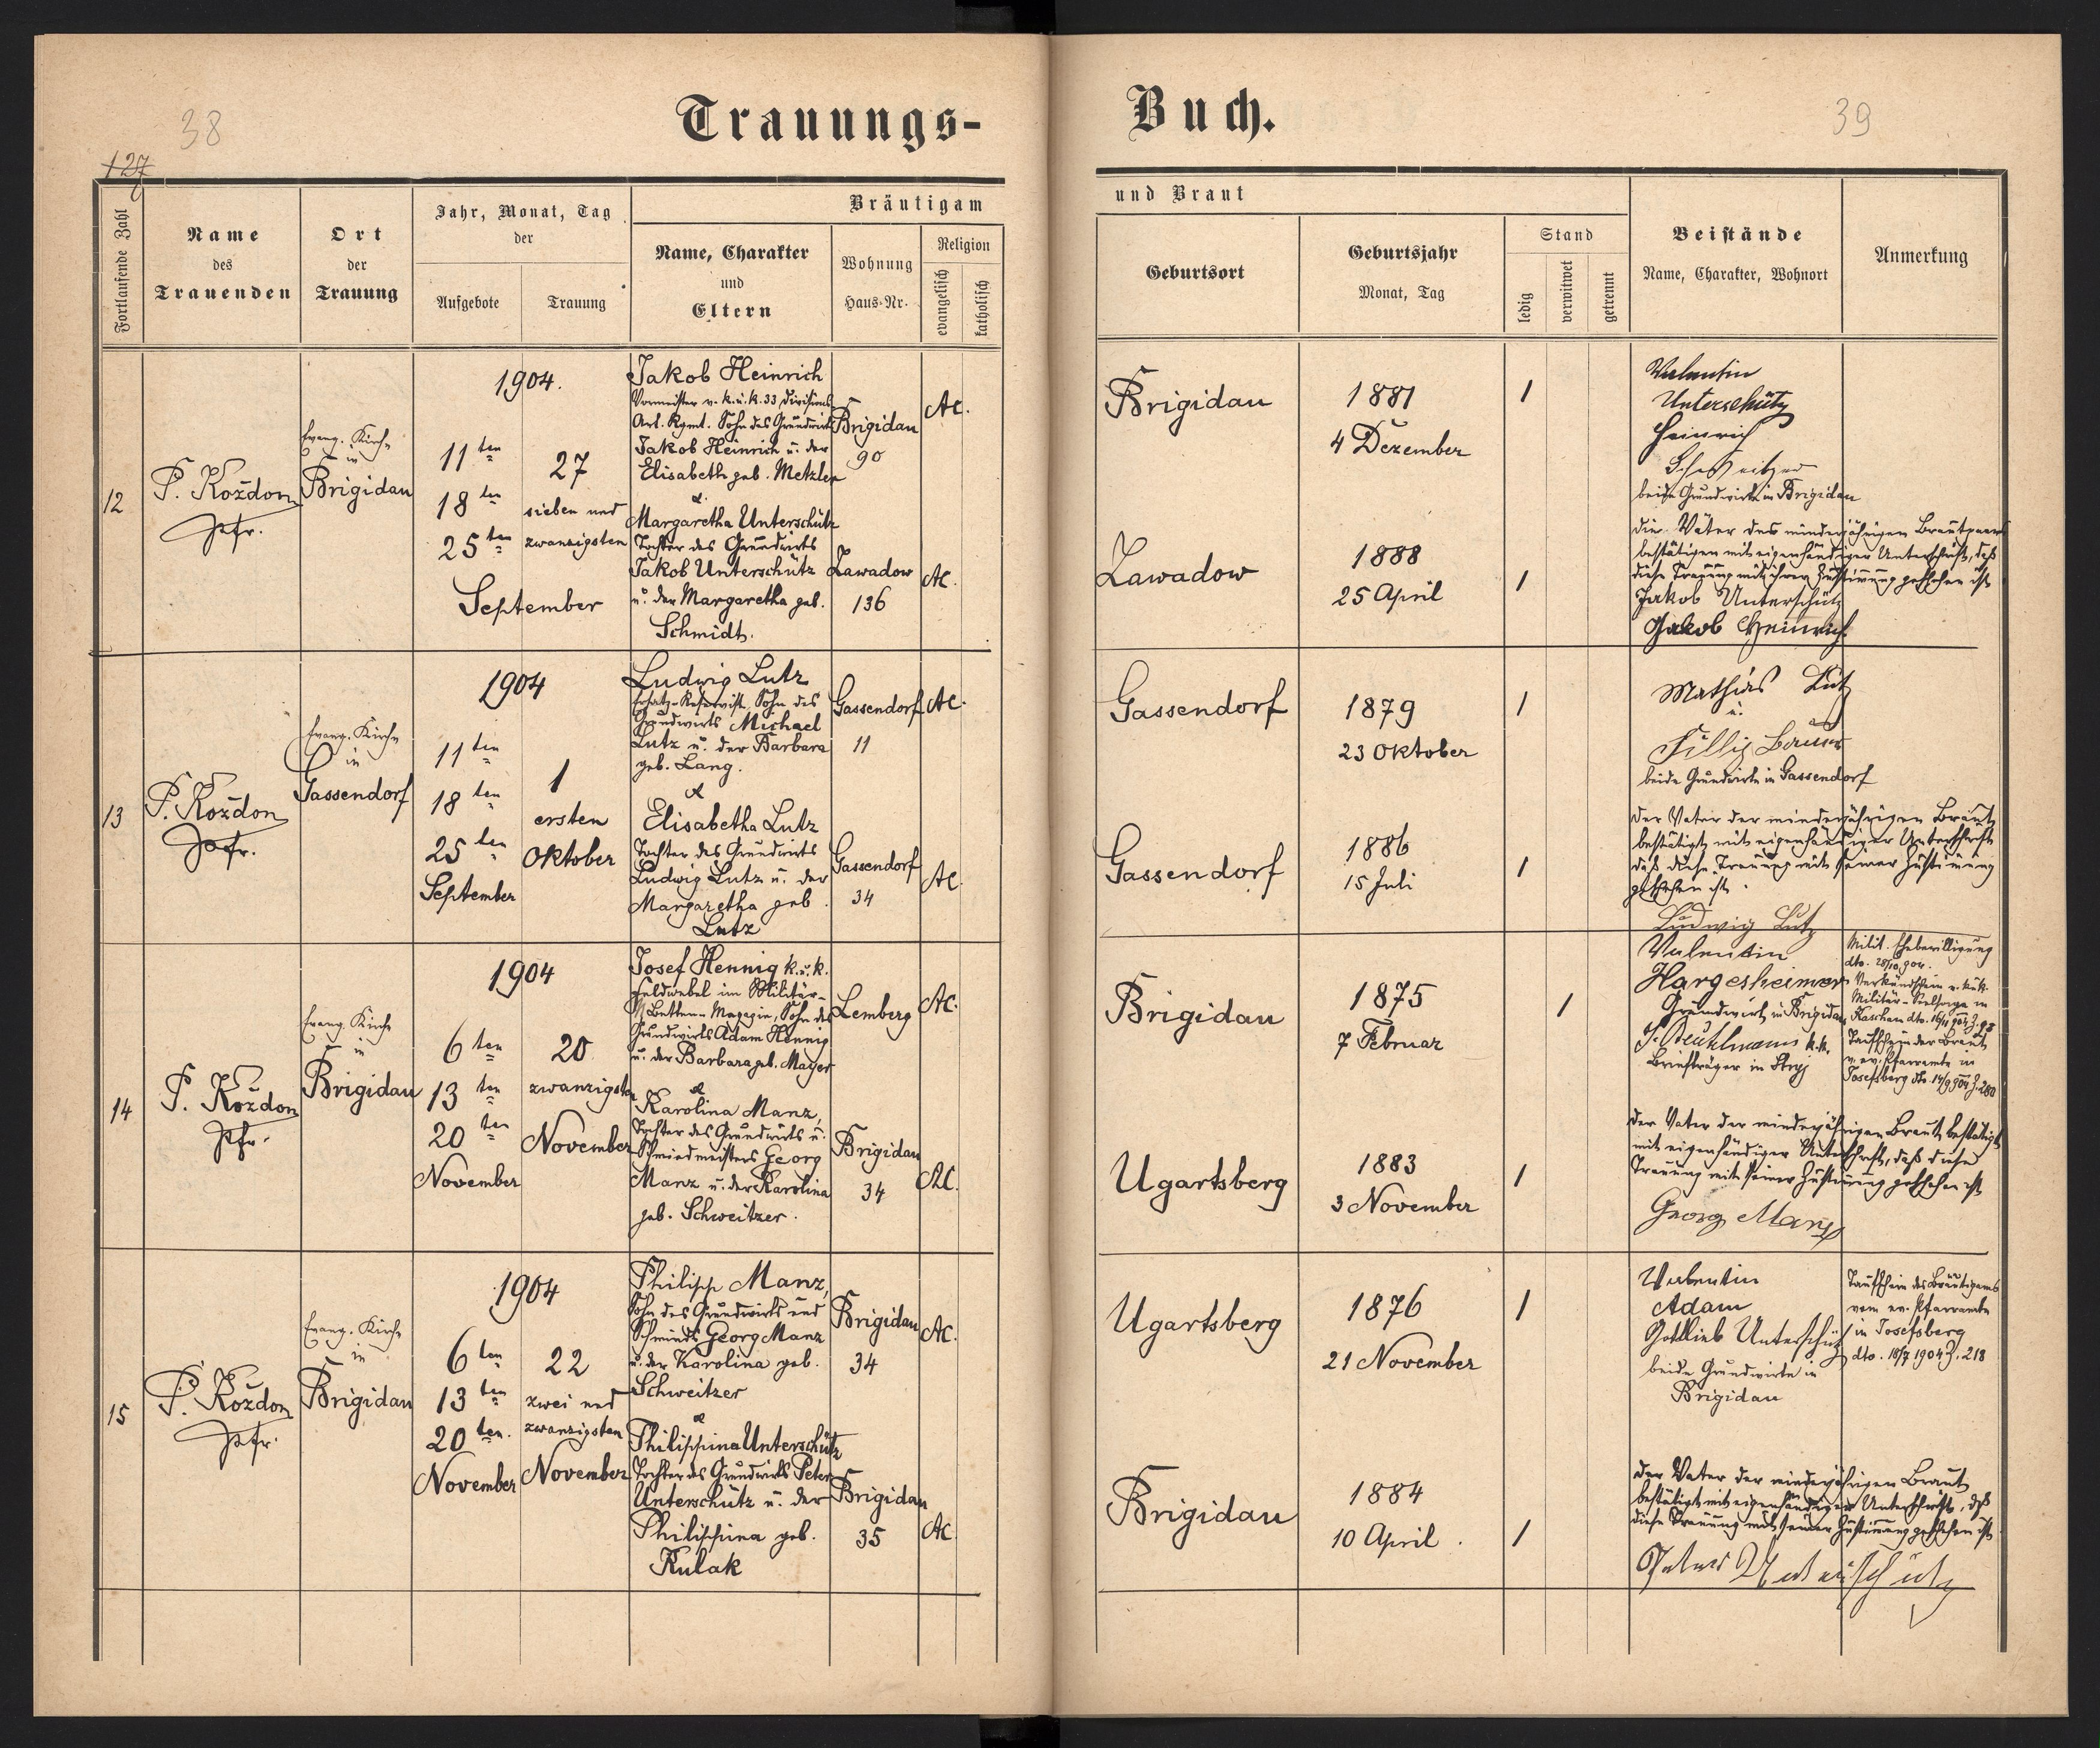 38
127
Trauungs-
Fortlaufende Zahl
Name
des
Trauenden
Ort
der
Trauung
Jahr, Monat, Tag
der
Aufgebote
Trauung
Bräutigam
Name, Charakter
und
Eltern
Wohnung
Haus-Nr.
Religion
evangelisch
katholisch
12
P. Koždon
Pfr.
Evang. Kirche
in
Brigidau
1904.
11ten
18ten
25ten
September
27
sieben und
zwanzigsten
Jakob Heinrich
Vormeister v. k. u. k. 33 Divisions
Art. Rgmt. Sohn des Grundwirts
Jakob Heinrich u. der
Elisabeth geb. Metzler
&
Margaretha Unterschütz
Tochter des Grundwirts
Jakob Unterschütz
u. der Margaretha geb.
Schmidt.
Brigidau
90
Zawadow
136
AC.
AC.
13
P. Koždon
Pfr.
Evang. Kirche
in
Gassendorf
1904
11ten
18ten
25ten
September
1
ersten
Oktober
Ludwig Lutz
Ersatz-Reservist, Sohn des
Grundwirts Michael
Lutz u. der Barbara
geb. Lang.
&
Elisabetha Lutz
Tochter des Grundwirts
Ludwig Lutz u. der
Margaretha geb.
Lutz
Gassendorf
11
Gassendorf
34
AC.
AC.
14
P. Koždon
Pfr.
Evang. Kirche
in
Brigidau
1904
6ten
13ten
20ten
November
20
zwanzigsten
November
Josef Hennig k. u. k.
Feldwebel im Militär-
Betten-Magazin, Sohn des
Grundwirts Adam Hennig
u. der Barbara geb. Mayer
&
Karolina Manz,
Tochter des Grundwirts u.
Schmiedmeisters Georg
Manz u. der Karolina
geb. Schweitzer.
Lemberg
Brigidau
34
AC.
AC.
15
P. Koždon
Pfr.
Evang. Kirche
in
Brigidau
1904
6ten
13ten
20ten.
November
22
zwei und
zwanzigsten
November
Philipp Manz,
Sohn des Grundwirts und
Schmieds Georg Manz
u. der Karolina geb.
Schweitzer
&
Philippina Unterschütz
Tochter des Grundwirts Peter
Unterschütz u. der
Philippina geb.
Kulak
Brigidau
34
Brigidau
35
AC.
AC.
39
Buch.
und Braut
Geburtsort
Geburtsjahr
Monat, Tag
Stand
ledig
verwitwet
getrennt
Beistände
Name, Charakter, Wohnort
Anmerkung
Brigidau
1881
4 Dezember
1
Zawadow
1888
25 April
1
Valentin
Unterschütz
Heinrich
Schweitzer
beide Grundwirte in Brigidau
Die Väter des minderjährigen Brautpaares
bestätigen mit eigenhändiger Unterschrift, daß
diese Trauung mit ihrer Zustimmung geschehen ist
Jakob Unterschütz
Jakob Heinrich
Gassendorf
1879
23 Oktober
1
Gassendorf
1886
15 Juli
1
Mathias Lutz
u.
beide Grundwirte in Gassendorf
Der Vater der minderjährigen Braut
bestätigt mit eigenhändiger Unterschrift
daß diese Trauung mit seiner Zustimmung
geschehen ist.
Ludwig Lutz
Brigidau
1875
7 Februar
1
Ugartsberg
1883
3 November
1
Valentin
Hargesheimer
Grundwirt in Brigidau
k.k.
Briefträger in Stryj
Milit. Ehebewilligung
dto. 28/10 904.
Verkündschein v. k.u.k.
Militär-Seelsorge in
Kaschau dto. 16/11 904 Z. 93
Taufschein der Braut
v. ev. Pfarramte in
Josefsberg dto. 14/9 904 Z. 280
Der Vater der minderjährigen Braut bestätigt
mit eigenhändiger Unterschrift, daß diese
Trauung mit seiner Zustimmung geschehen ist
Georg Manz
Ugartsberg
1876
21 November
1
Brigidau
1884
10 April.
1
Valentin
Adam
Gottlieb Unterschütz
beide Grundwirte in
Brigidau
Taufschein des Bräutigams
vom ev. Pfarramte
in Josefsberg
dto. 18/7 1904 Z. 218
Der Vater der minderjährigen Braut
bestätigt mit eigenhändiger Unterschrift, daß
diese Trauung mit seiner Zustimmung geschehen ist
Peter Unterschütz